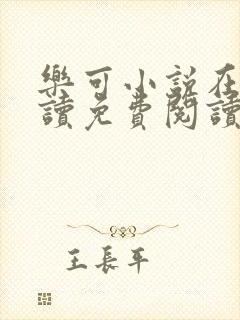 樂可小說在
讀免費閱讀
王長平